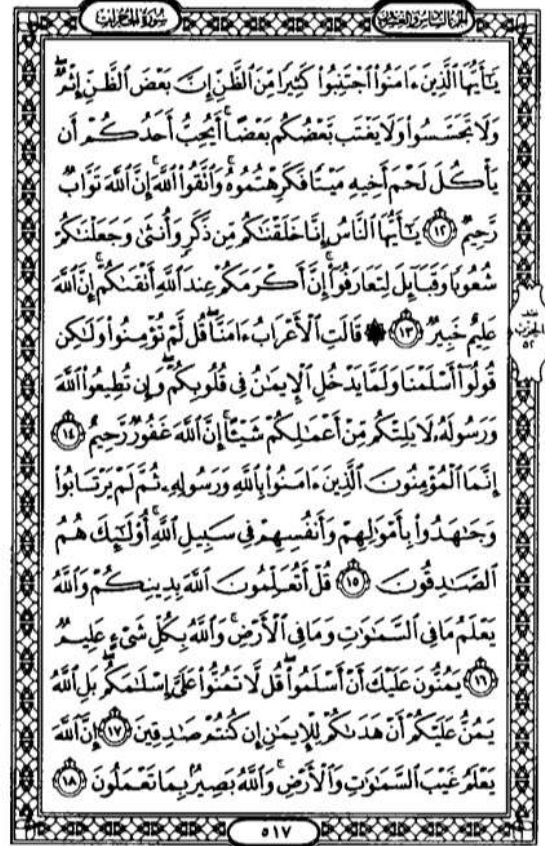 سُورَةُ الحُجُرَاتِ
الجُزْءُ السَّادِسُ وَالعِشْرُونَ
يَٰٓأَيُّهَا ٱلَّذِينَ ءَامَنُوا۟ ٱجْتَنِبُوا۟ كَثِيرًا مِّنَ ٱلظَّنِّ إِنَّ بَعْضَ ٱلظَّنِّ إِثْمٌۖ
وَلَا تَجَسَّسُوا۟ وَلَا يَغْتَب بَّعْضُكُم بَعْضًاۚ أَيُحِبُّ أَحَدُكُمْ أَن
يَأْكُلَ لَحْمَ أَخِيهِ مَيْتًا فَكَرِهْتُمُوهُۚ وَٱتَّقُوا۟ ٱللَّهَۚ إِنَّ ٱللَّهَ تَوَّابٌ
رَّحِيمٌ ١٢ يَٰٓأَيُّهَا ٱلنَّاسُ إِنَّا خَلَقْنَٰكُم مِّن ذَكَرٍ وَأُنثَىٰ وَجَعَلْنَٰكُمْ
شُعُوبًا وَقَبَآئِلَ لِتَعَارَفُوٓا۟ۚ إِنَّ أَكْرَمَكُمْ عِندَ ٱللَّهِ أَتْقَىٰكُمْۚ إِنَّ ٱللَّهَ
عَلِيمٌ خَبِيرٌ ١٣ ۞ قَالَتِ ٱلْأَعْرَابُ ءَامَنَّاۖ قُل لَّمْ تُؤْمِنُوا۟ وَلَٰكِن
قُولُوٓا۟ أَسْلَمْنَا وَلَمَّا يَدْخُلِ ٱلْإِيمَٰنُ فِى قُلُوبِكُمْۖ وَإِن تُطِيعُوا۟ ٱللَّهَ
وَرَسُولَهُۥ لَا يَلِتْكُم مِّنْ أَعْمَٰلِكُمْ شَيْـًٔاۚ إِنَّ ٱللَّهَ غَفُورٌ رَّحِيمٌ ١٤
إِنَّمَا ٱلْمُؤْمِنُونَ ٱلَّذِينَ ءَامَنُوا۟ بِٱللَّهِ وَرَسُولِهِۦ ثُمَّ لَمْ يَرْتَابُوا۟
وَجَٰهَدُوا۟ بِأَمْوَٰلِهِمْ وَأَنفُسِهِمْ فِى سَبِيلِ ٱللَّهِۚ أُو۟لَٰٓئِكَ هُمُ
ٱلصَّٰدِقُونَ ١٥ قُلْ أَتُعَلِّمُونَ ٱللَّهَ بِدِينِكُمْ وَٱللَّهُ
يَعْلَمُ مَا فِى ٱلسَّمَٰوَٰتِ وَمَا فِى ٱلْأَرْضِۚ وَٱللَّهُ بِكُلِّ شَىْءٍ عَلِيمٌ
١٦ يَمُنُّونَ عَلَيْكَ أَنْ أَسْلَمُوا۟ۖ قُل لَّا تَمُنُّوا۟ عَلَىَّ إِسْلَٰمَكُمۖ بَلِ ٱللَّهُ
يَمُنُّ عَلَيْكُمْ أَنْ هَدَىٰكُمْ لِلْإِيمَٰنِ إِن كُنتُمْ صَٰدِقِينَ ١٧ إِنَّ ٱللَّهَ
يَعْلَمُ غَيْبَ ٱلسَّمَٰوَٰتِ وَٱلْأَرْضِۚ وَٱللَّهُ بَصِيرٌۢ بِمَا تَعْمَلُونَ ١٨
٥١٧